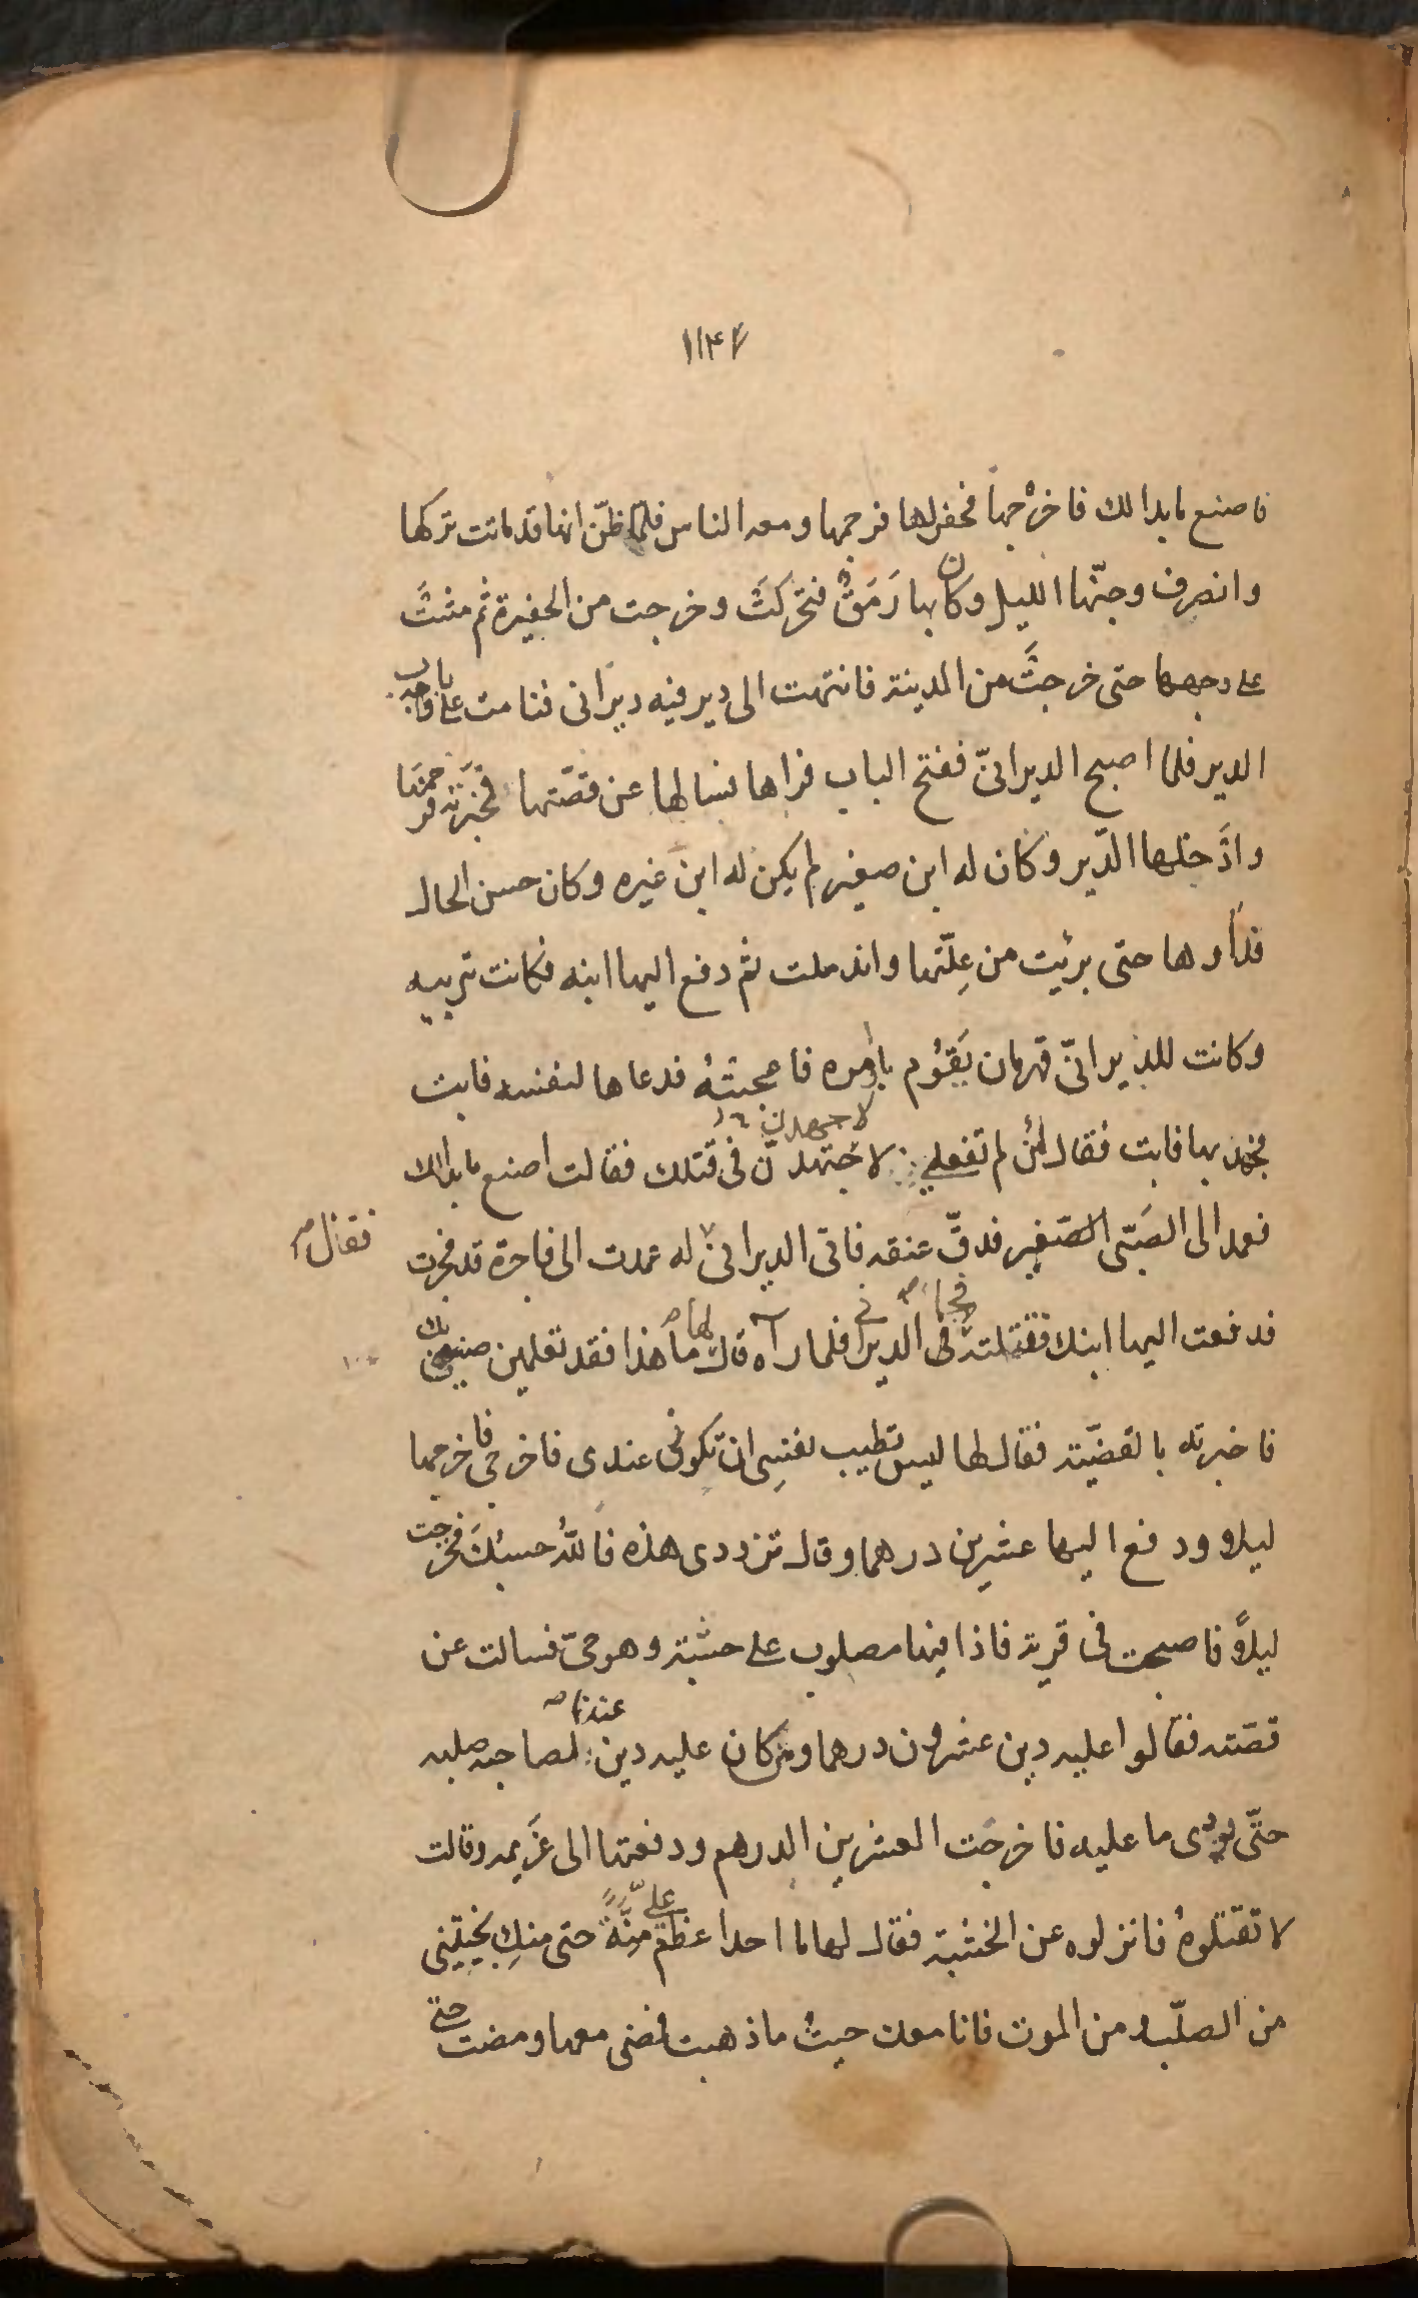 ۱۱۴۶
فاصنع ما بدا لك فاخرجها فحفر لها فرجمها ومعه الناس فلما ظنّ انها قد ماتت تركها
وانصرف وجنّها الليل وكان بها رَمَقٌ فتحركتَ وخرجت من الحفيرة ثم مشتَّ
على وجهها حتى خرجتَّ من المدينة فانتهت الى دير فيه ديراني فنامت على باب
الدير فلما اصبح الديرانىّ ففتح الباب فراها فسالها عن قصّتها فخبرته فرحمها
وادَخلها الدّير وكان له ابن صغير لم يكن له ابن غيره وكان حسن الحال
فداوها حتى برئيت من عِلّتها واندملت ثم دفع اليها ابنه فكانت تربيه
وكانت للديرانىّ قهرمان يَقوُم باوٰمره فاعجبتهُ فدعاها لنفسه فابت
فجهد بها فابت فقال لئن لم تفعلي لاجتهدنّ لاجهدن فى قتلك فقالت اصنع ما بدا لك
فعمد الى الصَبّى الصّغير فدقّ عنقه فاتى الديرانى له عمدت الى فاجرة قد فجرت
فقال
فدفعت اليها ابنك فقتلته فجاء الديرانى فلما راٰه قال لها ما هذا فقد تعلمين صنيعى بك
فاخبرته بالقضيّة فقال لها ليس تطيب نفسِى ان تكونى عندى فاخرجى فاخرجها
ليلا ودفع اليها عشرين درهما وقال تزددى هذه فاللهُ حسبُكَ فخرجت
ليلاً فاصبحت فى قرية فاذا فيها مصلوب على خشبة وهو حىّ فسالت عن
قصّته فقالوا عليه دين عشرون درهما ومن كان عليه دين عندنا لصاحبه صلبه
حتّى يودى ما عليه فاخرجت العشرين الدرهم ودفعتها الى غَريمه وقالت
لا تقتلوهُ فانزلوه عن الخشبة فقال لها ما احدا عظم علىّ مِنّةً حتى منكِ نجيّتنى
من الصلّب ومن الموت فانا معك حيثُ ماذهبت فمضى معها ومضت حتّى